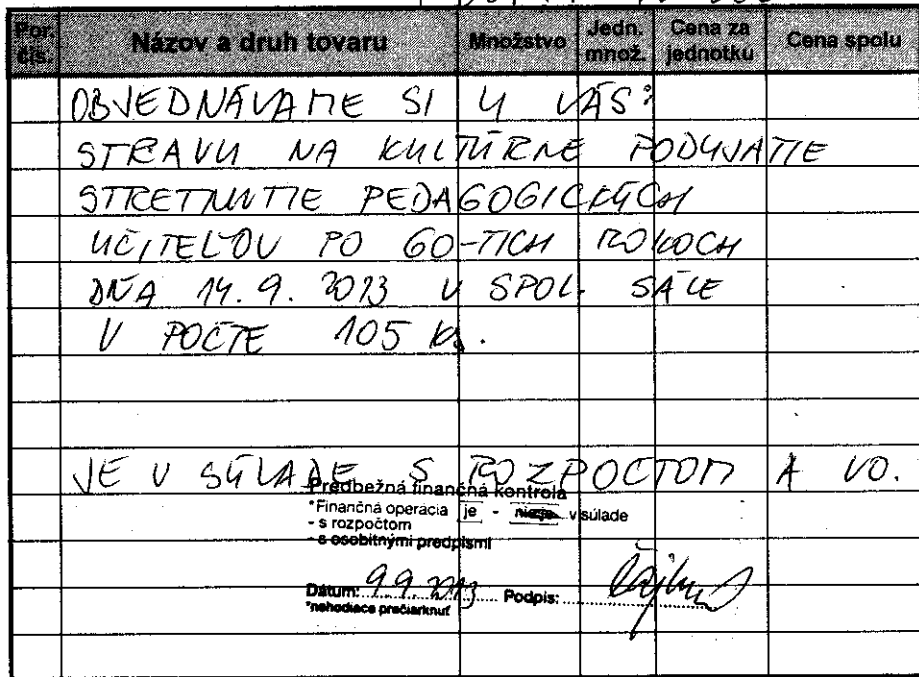 Por. čís. Názov a druh tovaru Množstvo Jedn. množ. Cena za jednotku Cena spolu
OBJEDNÁVAME SI U VÁS:
STRAVU NA KULTÚRNE PODUJATIE
STRETNUTIE PEDAGOGICKÝCH
UČITEĽOV PO 60-TICH ROKOCH
DŇA 14.9. 2013 V SPOL. SÁLE
V POČTE 105 ks.
JE V SÚLADE S ROZPOČTOM A VO.
Predbežná finančná kontrola
*Finančná operácia je - nie je v súlade
- s rozpočtom
- s osobitnými predpismi
Dátum: 9.9.2013 Podpis:
*nehodiace prečiarknuť